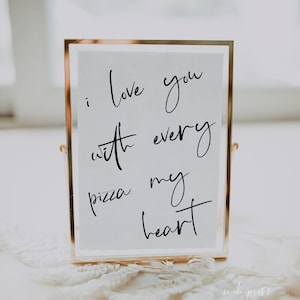 i love you
with every
pizza my
heart